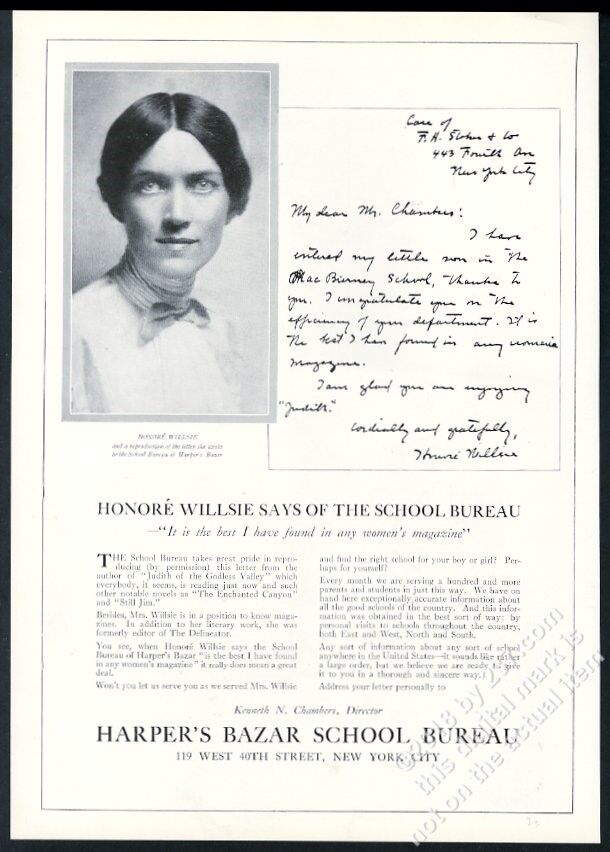 Care of
F.A. Stokes & Co
443 Fourth Ave
New York City
My dear Mr. Chambers:
I have
entered my little son in the
MacBurney School, thanks to
you. I congratulate you on the
efficiency of your department. It is
the best I have found in any womans
magazine.
I am glad you are enjoying
"Judith."
Cordially and gratefully,
Honoré Willsie
HONORÉ WILLSIE
and a reproduction of the letter she wrote
to the School Bureau of Harper's Bazar
HONORÉ WILLSIE SAYS OF THE SCHOOL BUREAU
—"It is the best I have found in any women's magazine"
THE School Bureau takes great pride in repro-
ducing (by permission) this letter from the
author of "Judith of the Godless Valley" which
everybody, it seems, is reading just now and such
other notable novels as "The Enchanted Canyon"
and "Still Jim."
Besides, Mrs. Willsie is in a position to know maga-
zines. In addition to her literary work, she was
formerly editor of The Delineator.
You see, when Honoré Willsie says the School
Bureau of Harper's Bazar "is the best I have found
in any women's magazine" it really does mean a great
deal.
Won't you let us serve you as we served Mrs. Willsie
and find the right school for your boy or girl? Per-
haps for yourself?
Every month we are serving a hundred and more
parents and students in just this way. We have on
hand here exceptionally accurate information about
all the good schools of the country. And this infor-
mation was obtained in the best sort of way: by
personal visits to schools throughout the country,
both East and West, North and South.
Any sort of information about any sort of school
anywhere in the United States—it sounds like rather
a large order, but we believe we are ready to give
it to you in a thorough and sincere way.
Address your letter personally to
Kenneth N. Chambers, Director
HARPER'S BAZAR SCHOOL BUREAU
119 WEST 40TH STREET, NEW YORK CITY
this digital mark is
not on the actual item